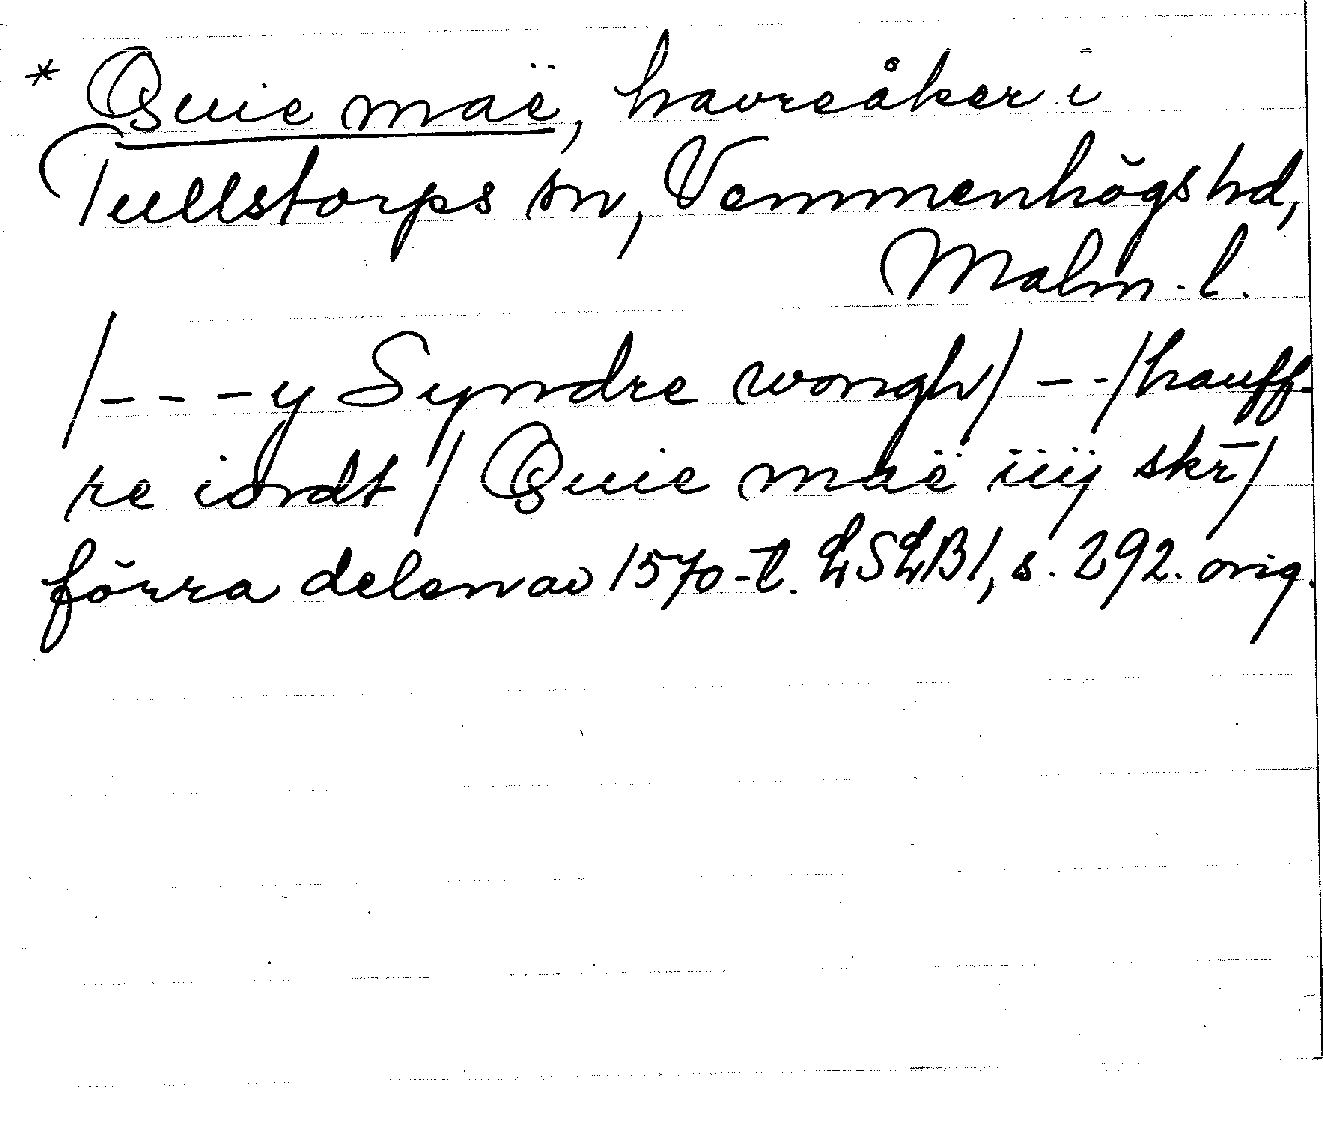 * Quie maë, havreåker i
Tullstorps sn, Vemmenhögs hd,
Malm. l.
/---y Syndre wongh/ --/hauff-
re iordt / Quie maë iiij skr̄/
förra delen av 1570-t. LSLB1, s. 292. orig.